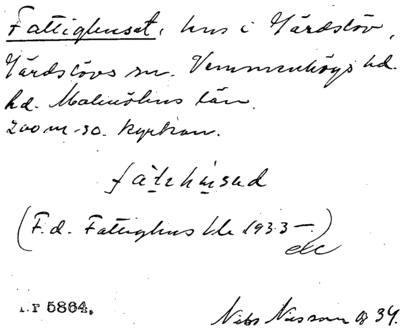 Fattighuset, hus i Gärdslöv,
Gärdslövs sn. Vemmenhögs hd.
hd. Malmöhus län.
200 m. so. kyrkan.
fátehúsed
(F.d. Fattighus tle 1933.)
etc
I.F 5864.
Nils Nilsson 34.